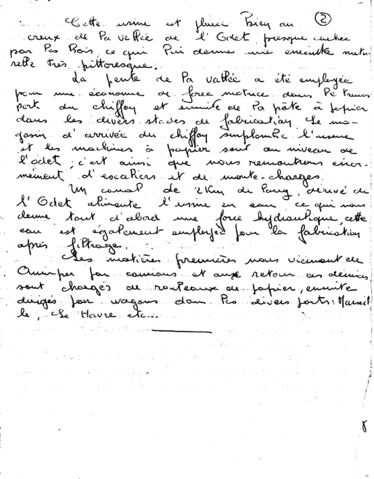 ②
Cette usine est placée bien au
creux de la vallée de l'Odet presque cachée
par les bois, ce qui lui donne une enceinte natu
relle très pittoresque.
La pente de la vallée a été employée
pour une économie de force motrice dans le trans
port du chiffon et ensuite de la pâte à papier
dans les divers stades de fabrication. Le ma-
gasin d'arrivée du chiffon surplombe l'usine
et les machines à papier sont au niveau de
l'Odet ; c'est ainsi que nous remontrons énor-
mément d'escaliers et de monte-charges.
Un canal de 2 Km de long, dérivé de
l'Odet alimente l'usine en eau ce qui nous
donne tout d'abord une force hydraulique, cette
eau est également employée pour la fabrication
après filtrage.
Les matières premières nous viennent de
Quimper par camions et aux retour ces derniers
sont chargés de rouleaux de papier, ensuite
dirigés par wagons dans les divers ports : Marseil
le, Le Havre etc...